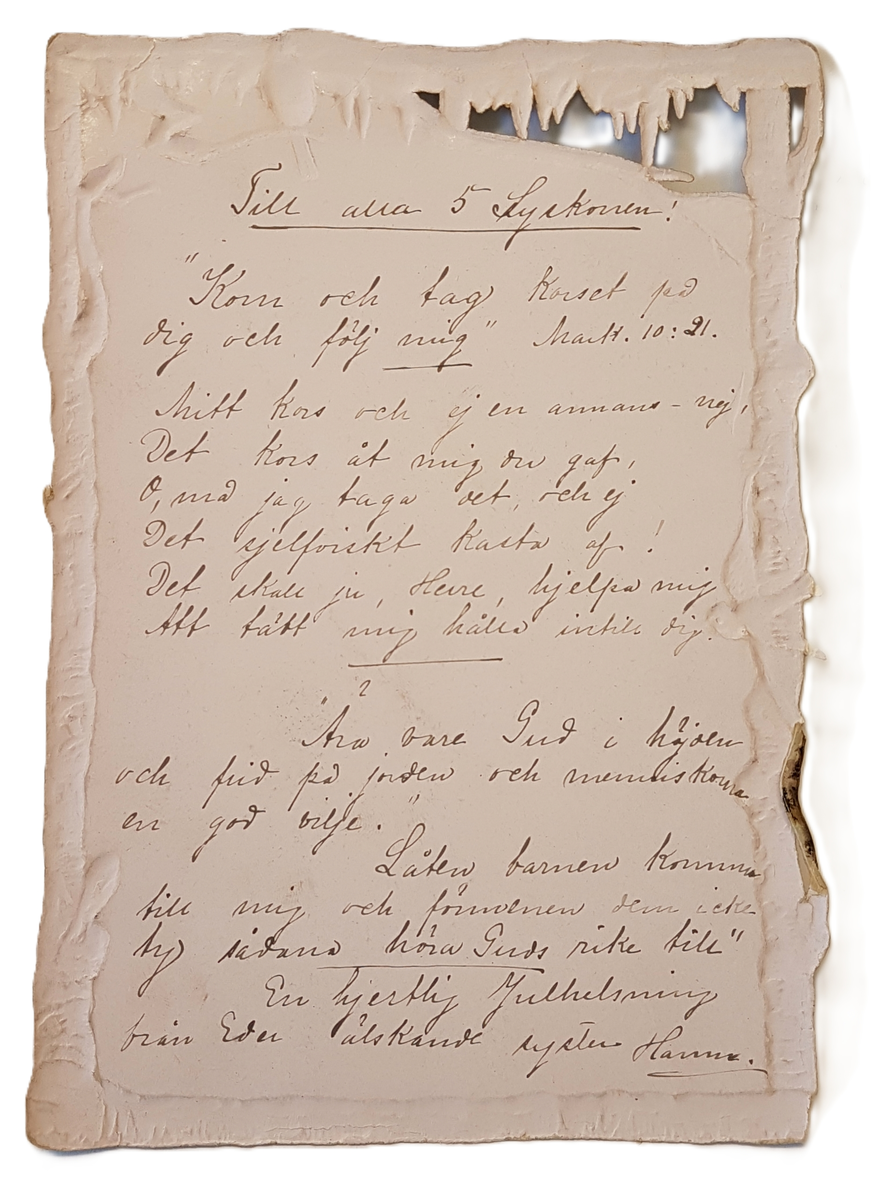 Till alla 5 Syskonen!
"Kom och tag korset på
dig och följ mig" Mark. 10:21.
Mitt kors och ej en annans - nej,
Det kors åt mig du gaf,
O, må jag taga det, och ej
Det sjelfviskt kasta af!
Det skall ju, Herre, hjelpa mig
Att tätt mig hålla intill dig.
"Ära vare Gud i höjden
och frid på jorden och menniskorna
en god vilje."
Låten barnen komma
till mig och förmenen dem icke
ty sådana höra Guds rike till"
En hjertlig Julhelsning
från Eder älskande syster Hanna.